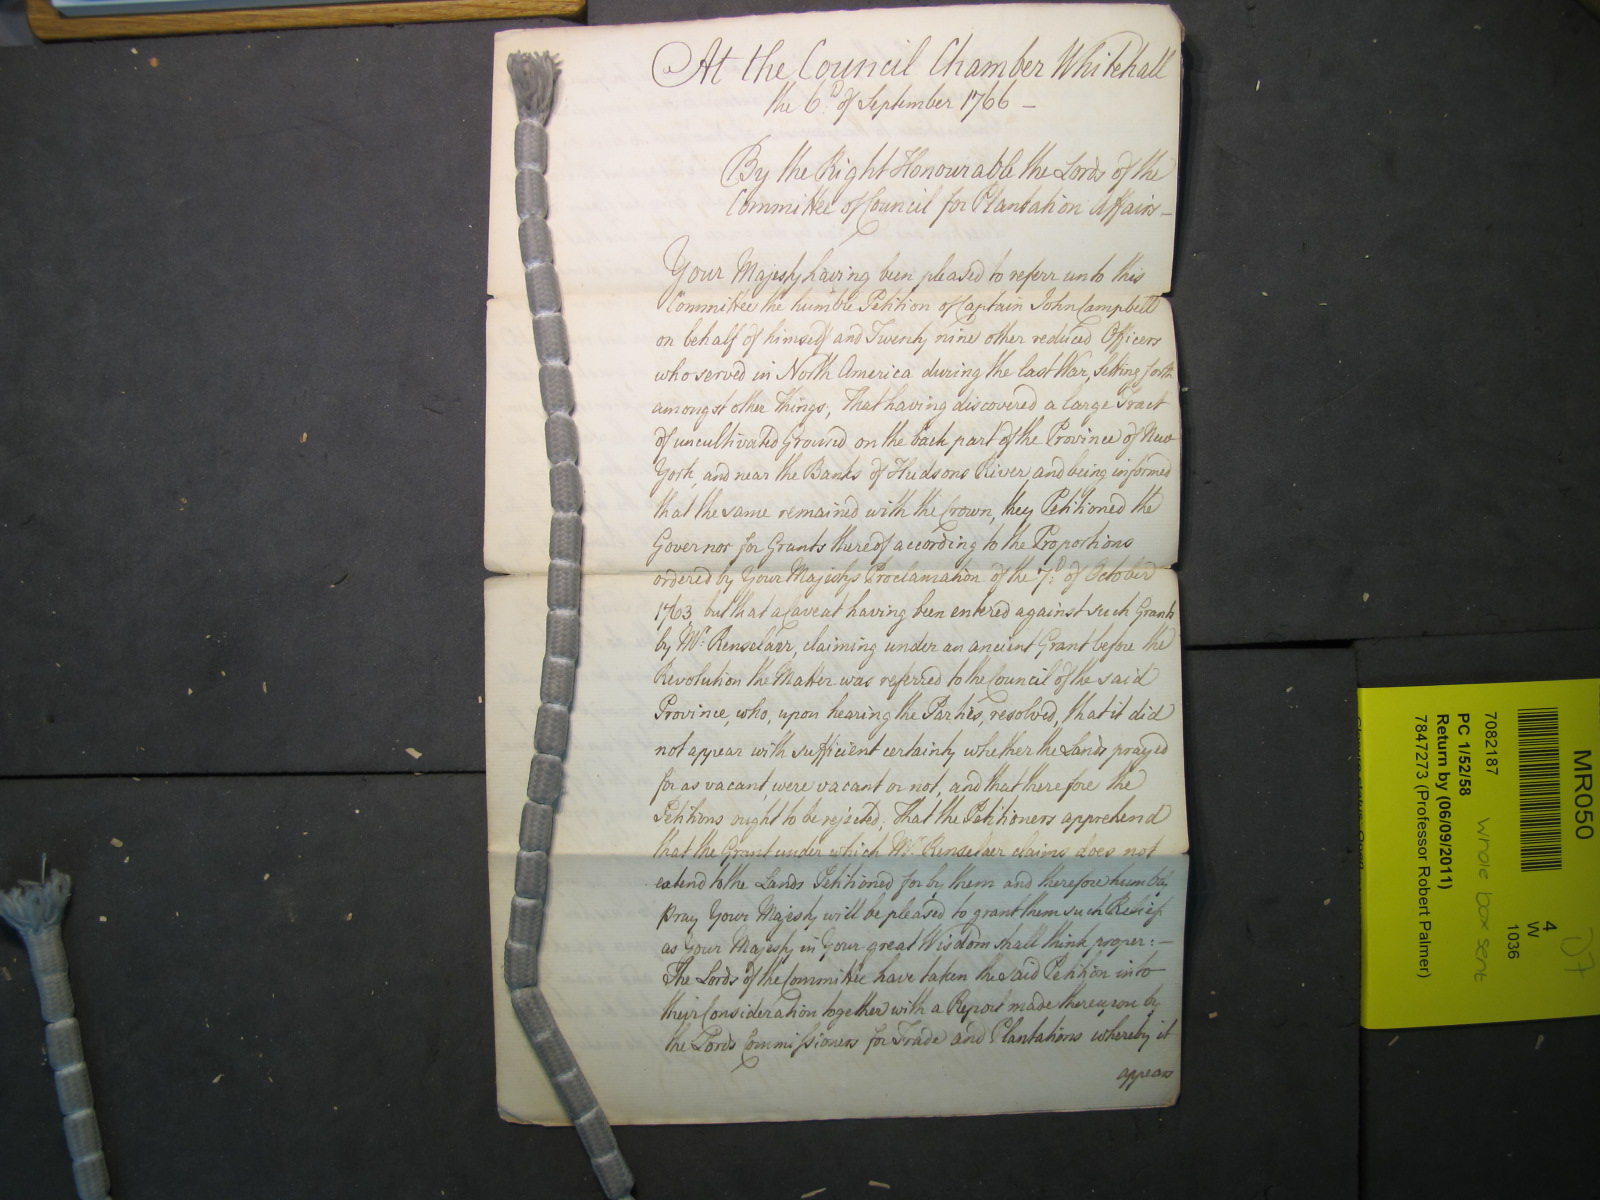 At the Council Chamber Whitehall
the 6.th of September 1766 –
By the Right Honourable the Lords of the
Committee of Council for Plantation Affairs –
Your Majesty having been pleased to referr unto this
Committee the humble Petition of Captain John Campbell
on behalf of himself and Twenty nine other reduced Officers
who served in North America during the last War, setting forth
amongst other things, That having discovered a large Tract
of uncultivated Ground on the back part of the Province of New
York, and near the Banks of Hudsons River, and being informed
that the same remained with the Crown, they Petitioned the
Governor for Grants thereof according to the Proportions
ordered by Your Majestys Proclamation of the 7.th of October
1763, but that a Caveat having been entered against such Grants
by Mr. Renselaer, claiming under an ancient Grant before the
Revolution the Matter was referred to the Council of the said
Province, who, upon hearing the Parties, resolved, that it did
not appear with sufficient certainty whether the Lands prayed
for as vacant, were vacant or not, and that therefore the
Petitions ought to be rejected; That the Petitioners apprehend
that the Grant under which Mr. Renselaer claims does not
extend to the Lands Petitioned for by them and therefore humbly
pray Your Majesty will be pleased to grant them such Relief
as Your Majesty in Your great Wisdom shall think proper: –
The Lords of the Committee have taken the said Petition into
their Consideration together with a Report made thereupon by
the Lords Commissioners for Trade and Plantations whereby it
appears
MR050
4
W
1036
7082187
whole box sent
PC 1/52/58
Return by (06/09/2011)
7847273 (Professor Robert Palmer)